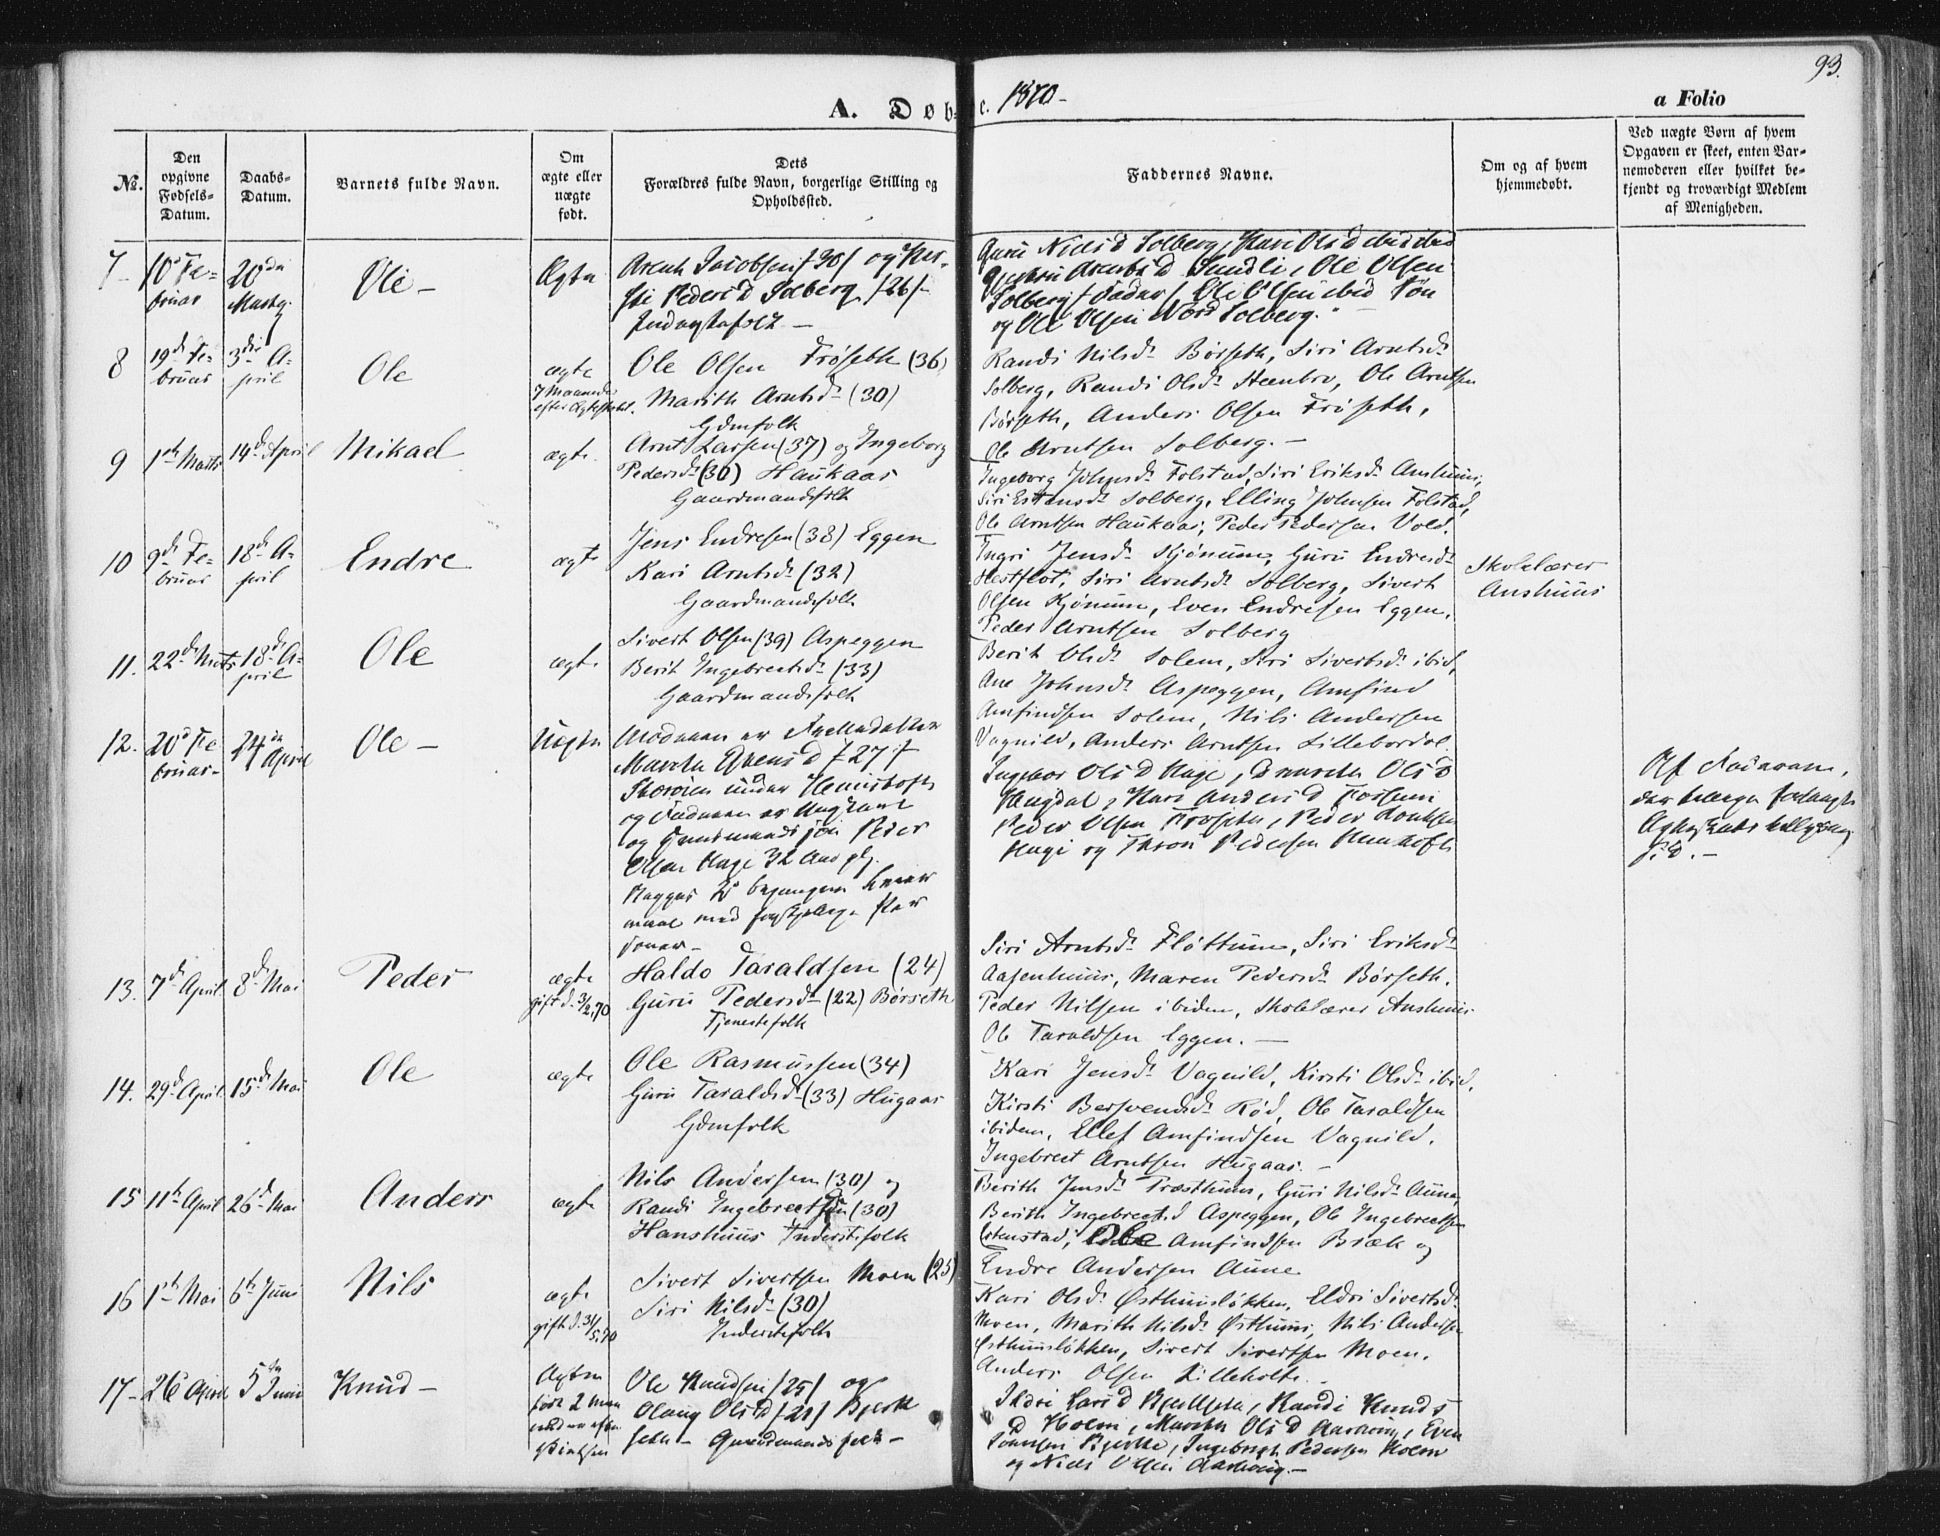 93.
A. Døbte. 1870-
a Folio
No.
Den opgivne Fødsels-Datum.
Daabs-Datum.
Barnets fulde Navn.
Om ægte eller uægte født.
Dets Forældres fulde Navn, borgerlige Stilling og Opholdssted.
Faddernes Navne.
Om og af hvem hjemmedøbt.
Ved uægte Børn af hvem Opgaven er skeet, enten Barnemoderen eller hvilket bekjendt og troværdigt Medlem af Menigheden.
7- 10d Februar 20de Marts Ole- Ægte
Arent Jacobsen /30/ og Kirsti Peders D Solberg /26/-
Inderstfolk-
Guru Niels D Solberg, Kari Ols D ibid
Arents D Sundli, Ole Olsen
Solberg / Fader / Ole Olsen ibid
og Ole Olsen Nord Solberg.
8 19d Februar 3die April Ole ægte
7 Maaneder efter Ægteskabet.
Ole Olsen Frøseth (36)
Marith Arntsd. (30)
Gdmfolk
Randi Nilsd. Børseth, Siri Arntsd.
Solberg, Randi Olsd. Steenbro, Ole Arntsen
Børseth, Anders Olsen Frøseth,
Ole Arntsen Solberg.-
9 1st Marts 14d April Mikael ægte
Arnt Larsen (37) og Ingeborg
Pedersd. (36) Haukaas
Gaardmandsfolk
Ingeborg Johnsd. Folstad, Siri Eriksd. Anshuus,
Siri Estensd. Solberg, Elling Johnsen Folstad,
Ole Arntsen Haukaas, Peder Pedersen Vold.
10 9d Februar 18d April Endre ægte
Jens Endresen (38) Eggen
Kari Arntsd. (32)
Gaardmandsfolk
Ingri Jensd. Kjønum, Guru Endresd.
Hertflot, Siri Arntsd. Solberg, Sivert
Olsen Kjønum, Even Endresen Eggen,
Peder Arntsen Solberg
Skolelærer
Anshuus
11. 22d Marts 18d April Ole ægte
Sivert Olsen (39) Aspeggen
Berit Ingebrectsd. (33)
Gaardmandsfolk
Berit Olsd. Solem, Siri Sivertsd. ibid,
Ane Johnsd. Aspeggen, Amfind
Amfindsen Solem, Nils Andersen
Vagnild, Anders Arntsen Lillebordal
12. 20d Februar- 24de April Ole- Uægte
Moderen er
Marith D /27/
under
og Faderen er Ungkarl
og Peder
Olsen Hage 32 Aar gl.
med
Ingebor Ols D Hage, Ols D
Haugdal, Kari Anders D
Peder Olsen Frøseth, Peder
Hage og Pedersen
Af Faderen,
13. 7d April 8d Mai Peder ægte
gift d. 3/2.70
Haldo Taraldsen (24)
Guru Pedersd. (22) Børseth
Tjenestefolk
Siri Arntsd. Fløttum, Siri Eriksd.
Aasenhuus, Maren Pedersd. Børseth.
Peder Nilsen ibidem, Skolelærer Anshuus
Ole Taraldsen Eggen.-
14. 29d April 15d Mai Ole ægte
Ole Rasmussen (34)
Guru Taraldsd. (33) Hugaas
Gdmfolk
Kari Jensd. Vagnild, Kirsti Olsd. ibid,
Kirsti Bersvendsd. Rød, Ole Taraldsen
ibidem, Ellef Amfindsen Vagnild.
Ingebrect Arntsen Hugaas.-
15 11te April 26d Mai Anders ægte
Nils Andersen (30) og
Randi Ingebrectsen (30)
Hanshuus Inderstfolk
Berith Jensd. Præsthuus, Guri Nilsd. Aune,
Berith Ingebrectsd Aspeggen, Ole Ingebrectsen
Estenstad, Ole Amfindsen Bræk og
Endre Andersen Aune
16 1st Mai 6te Juni Nils ægte
gift d. 31/5.70
Sivert Sivertsen Moen (25)
Siri Nilsd. (30)
Inderstefolk
Kari Olsd. Østhuusløkken, Eldri Sivertsd.
Moen, Marith Nilsd. Østhuus, Nils Andersen
Østhuusløkken, Sivert Sivertsen Moen.
Anders Olsen Lilleholte.
17- 26 April 5te Juni Knud- Ægte
født 2
Ole Knudsen /25/ og
Olaug Ols D /21/ Bjerk
seth-
Lars D Randi Knuds
D Holm, Ols D Even
Ingebrigt Pedersen Holm
og Niels Olsen